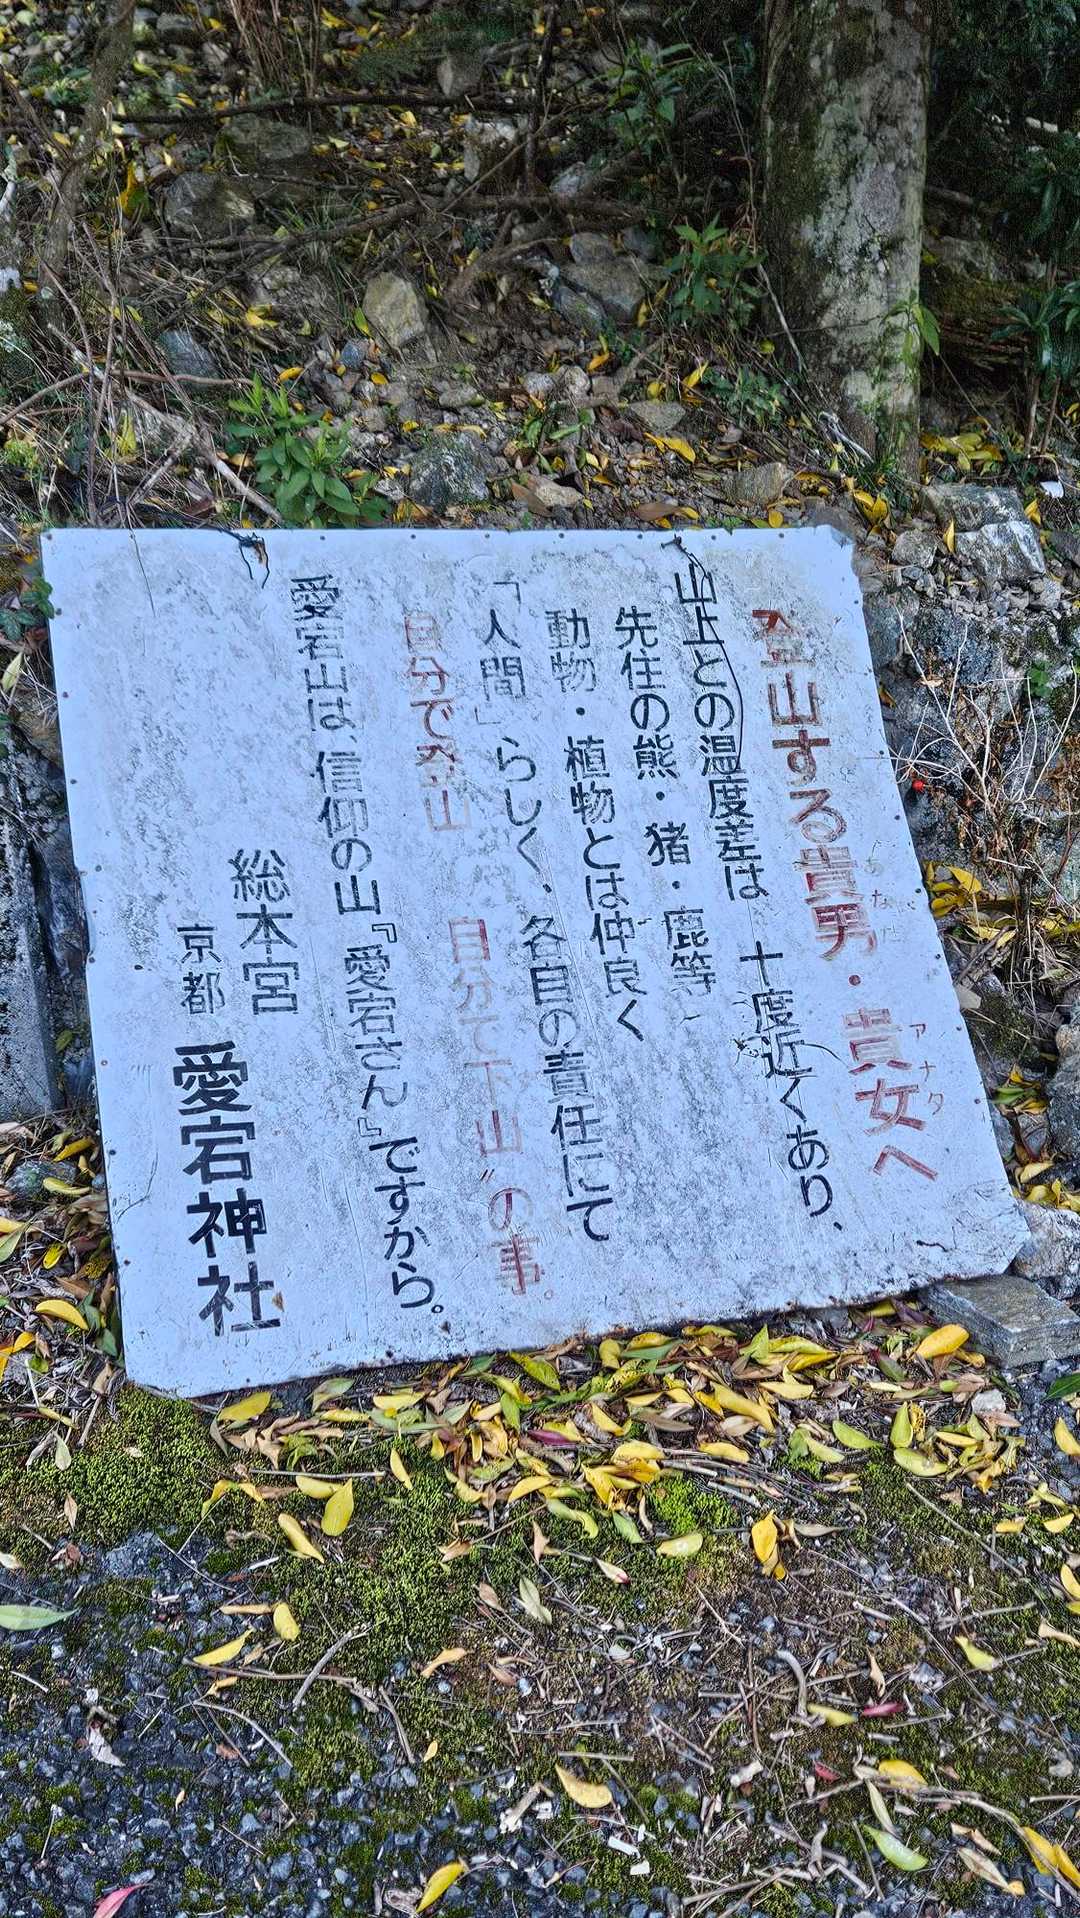 登山する貴男・貴女へ
あなた
アナタ
山上との温度差は 十度近くあり、
先住の熊・猪・鹿等
動物・植物とは仲良く
「人間」らしく、各自の責任にて
自分で登山 自分で下山〟の事。
愛宕山は、信仰の山『愛宕さん』ですから。
総本宮
京都 愛宕神社